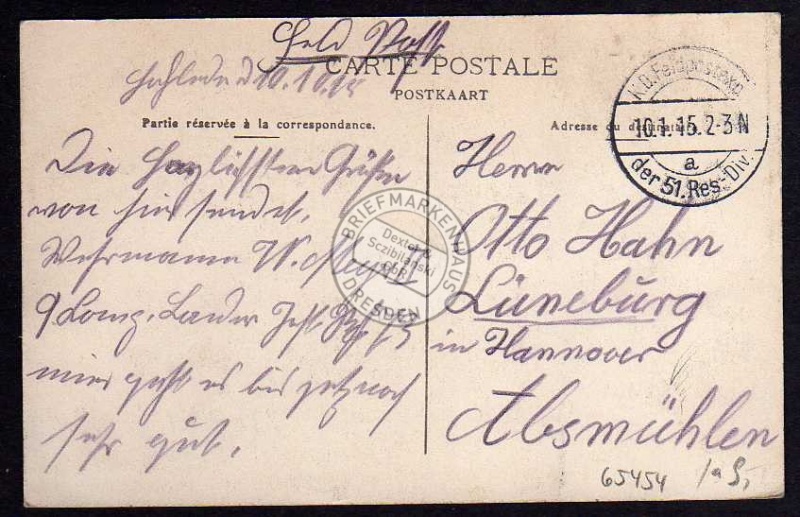 Feld Post
CARTE POSTALE
POSTKAART
d 10.1.15
Partie réservée à la correspondance.
Adresse du destinataire.
K.D. Feldpostexp.
10.1.15. 2-3 N
a
der 51. Res.-Div.
Die herzlichsten Grüße
von hier sendet
Wehrmann W.
9 Komp. Landw.
mir geht es bis jetz noch
sehr gut.
Herrn
Otto Hahn
Lüneburg
in Hannover
Absmühlen
65454
BRIEFMARKENHAUS
Dexler &
Sczibilanski
GbR
DRESDEN